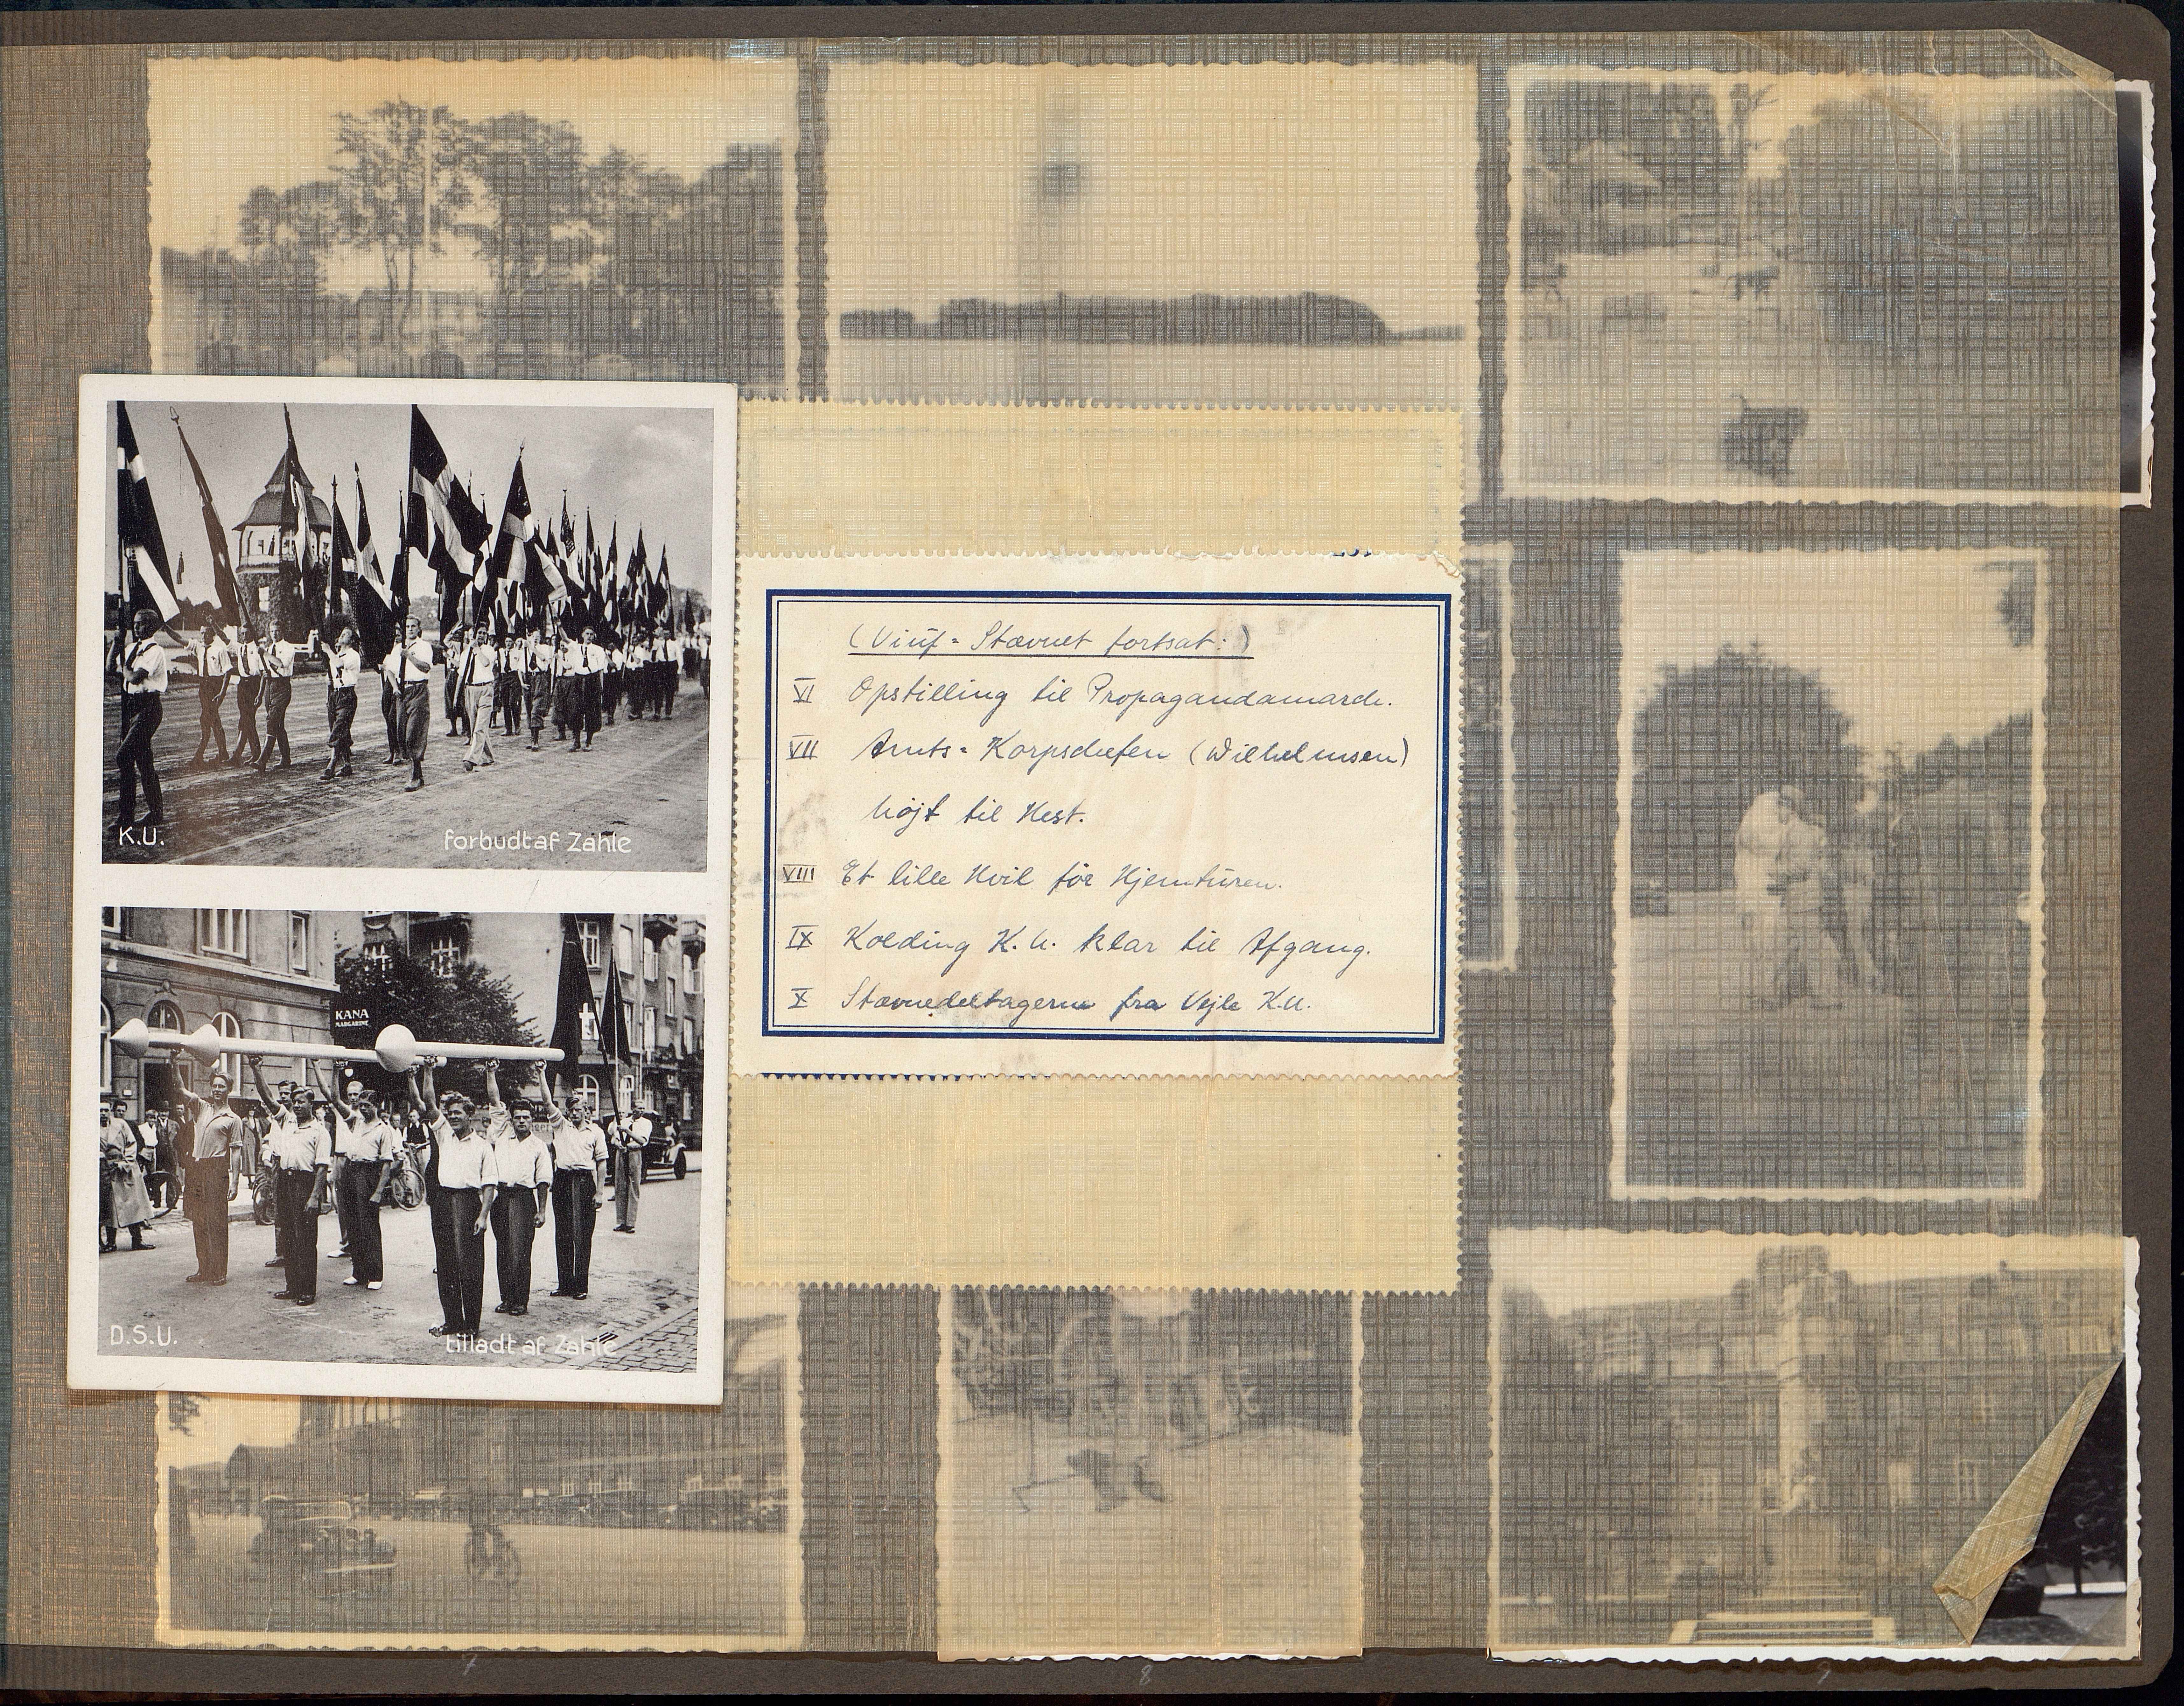 K.U. forbudt af Zahle
KANA
MARGARINE
D.S.U. tilladt af Zahle
(Viuf-Stævnet fortsat:)
VI Opstilling til Propagandamarch.
VII Amts-Korpschefen (Wilhelmsen)
højt til Hest.
VIII Et lille Hvil før Hjemturen.
IX Kolding K.U. klar til Afgang.
X Stævnedeltagerne fra Vejle K.U.
7
8
9